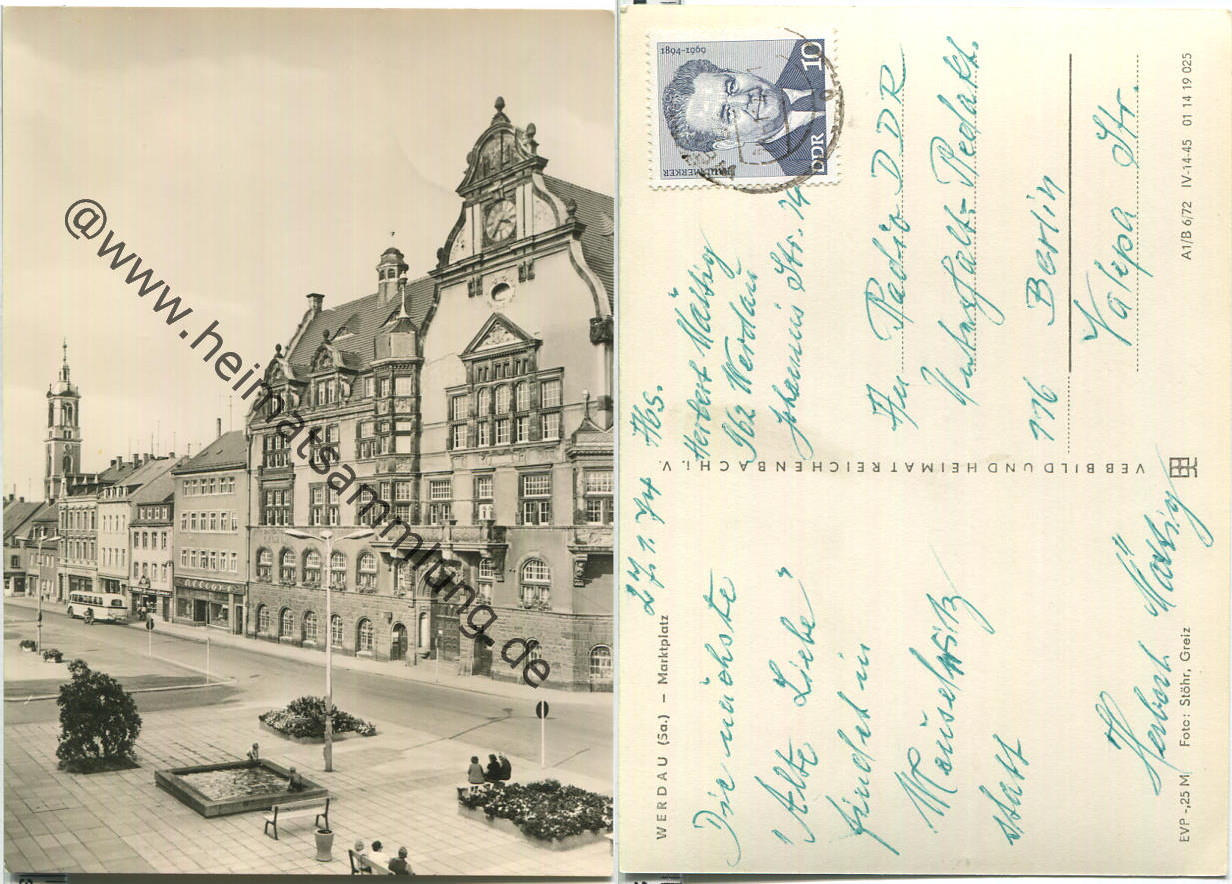 @www.heimatsammlung.de
WERDAU (Sa.) – Marktplatz
27.1.74
Die nächste
"Alte Liebe"
findet in
Meuselwitz
statt
Herbert Mässig
EVP -,25 M Foto: Stöhr, Greiz
VEB BILD UND HEIMAT REICHENBACH i. V.
1894–1969
PAUL MERKER
10
DDR
Abs.
Herbert Mässig
962 Werdau
Johannis Str. 14
An Radio DDR
Unterhalt-Redakt.
116 Berlin
Nalepa Str.
A1/B 6/72 IV-14-45 01 14 19 025